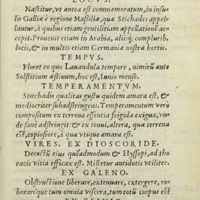 LOCVS.
Nascitur, vt antea est commemoratum, in insu-
lis Galliæ è regione Massiliæ, quæ Stichades appel-
lantur, à quibus etiam gentilitiam appellationem ac-
cepit. Prouenit etiam in Arabia, aliisq; compluribus
locis, & in multis etiam Germaniæ nostræ hortis.
TEMPVS.
Floret eo quo Lauandula tempore, nimirum ante
Solstitium æstiuum, hoc est, Iunio mense.
TEMPERAMENTVM.
Stœchadis qualitas gustu quidem amara est, &
mediocriter subadstringens. Temperamentum verò
compositum ex terrena essentia frigida exigua, vn-
de sanè adstringit: & ex tenui, altera, quæ terrena
est, copiosiore, à qua vtique amara est.
VIRES. EX DIOSCORIDE.
Decoctũ eius quẽadmodum & Hyssopi, ad tho-
racis vitia efficax est. Miscetur antidotis vtiliter.
EX GALENO.
Obstructione liberare, extenuare, extergere, ro-
borareque tum omnia viscera, tum totũ corpus est